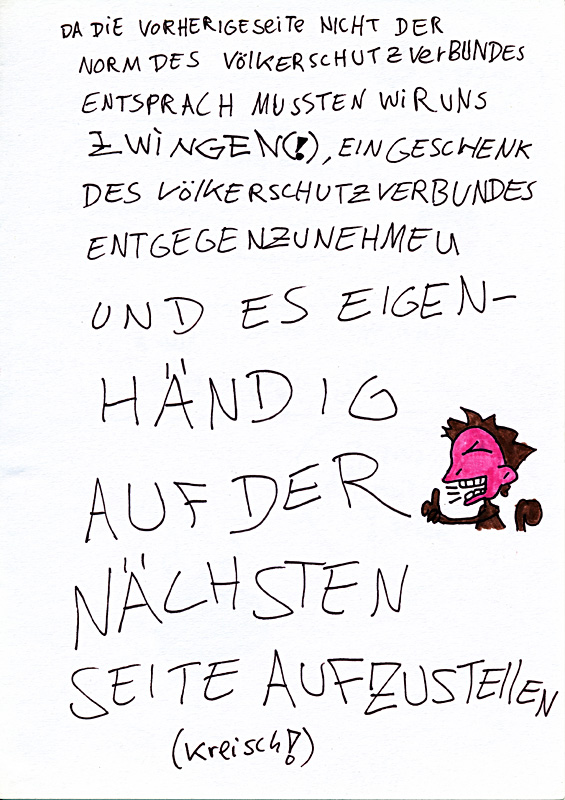 DA DIE VORHERIGESEITE NICHT DER
NORM DES VÖLKERSCHUTZVERBUNDES
ENTSPRACH MUSSTEN WIR UNS
ZWINGEN(!), EIN GESCHENK
DES VÖLKERSCHUTZVERBUNDES
ENTGEGENZUNEHMEN
UND ES EIGEN-
HÄNDIG
AUF DER
NÄCHSTEN
SEITE AUFZUSTELLEN
(Kreisch!)